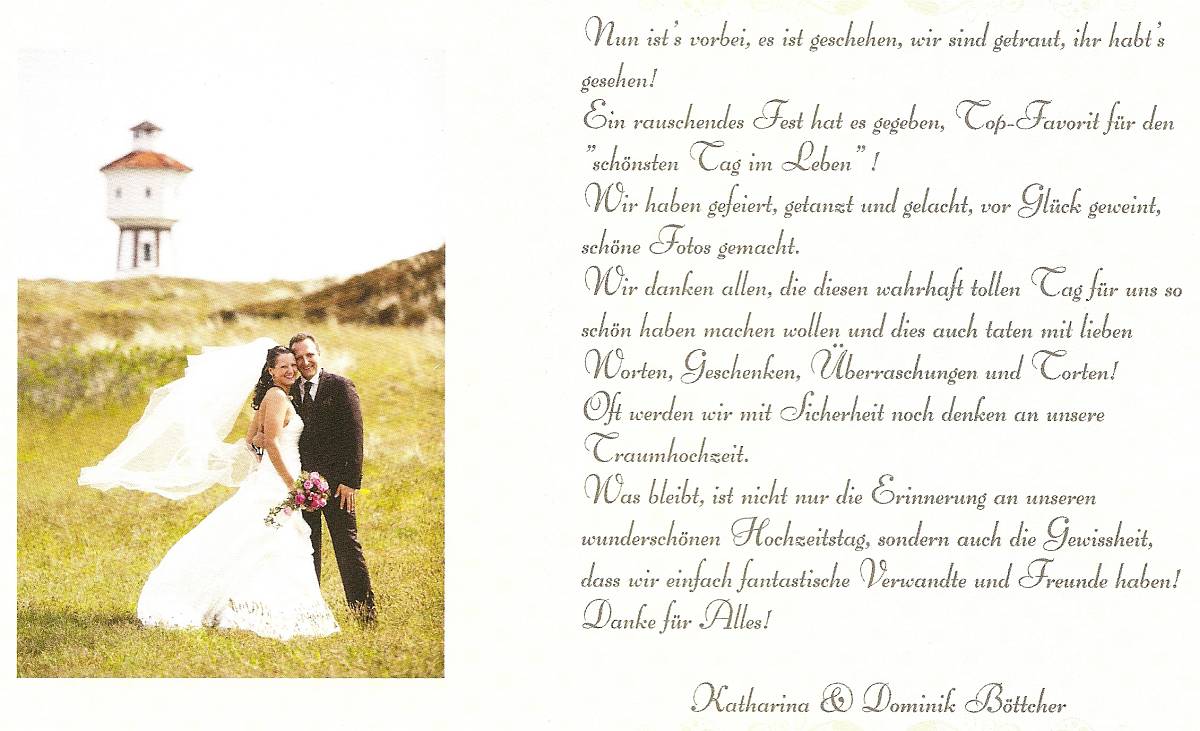 Nun ist's vorbei, es ist geschehen, wir sind getraut, ihr habt's
gesehen!
Ein rauschendes Fest hat es gegeben, Top-Favorit für den
"schönsten Tag im Leben" !
Wir haben gefeiert, getanzt und gelacht, vor Glück geweint,
schöne Fotos gemacht.
Wir danken allen, die diesen wahrhaft tollen Tag für uns so
schön haben machen wollen und dies auch taten mit lieben
Worten, Geschenken, Überraschungen und Torten!
Oft werden wir mit Sicherheit noch denken an unsere
Traumhochzeit.
Was bleibt, ist nicht nur die Erinnerung an unseren
wunderschönen Hochzeitstag, sondern auch die Gewissheit,
dass wir einfach fantastische Verwandte und Freunde haben!
Danke für Alles!
Katharina & Dominik Böttcher